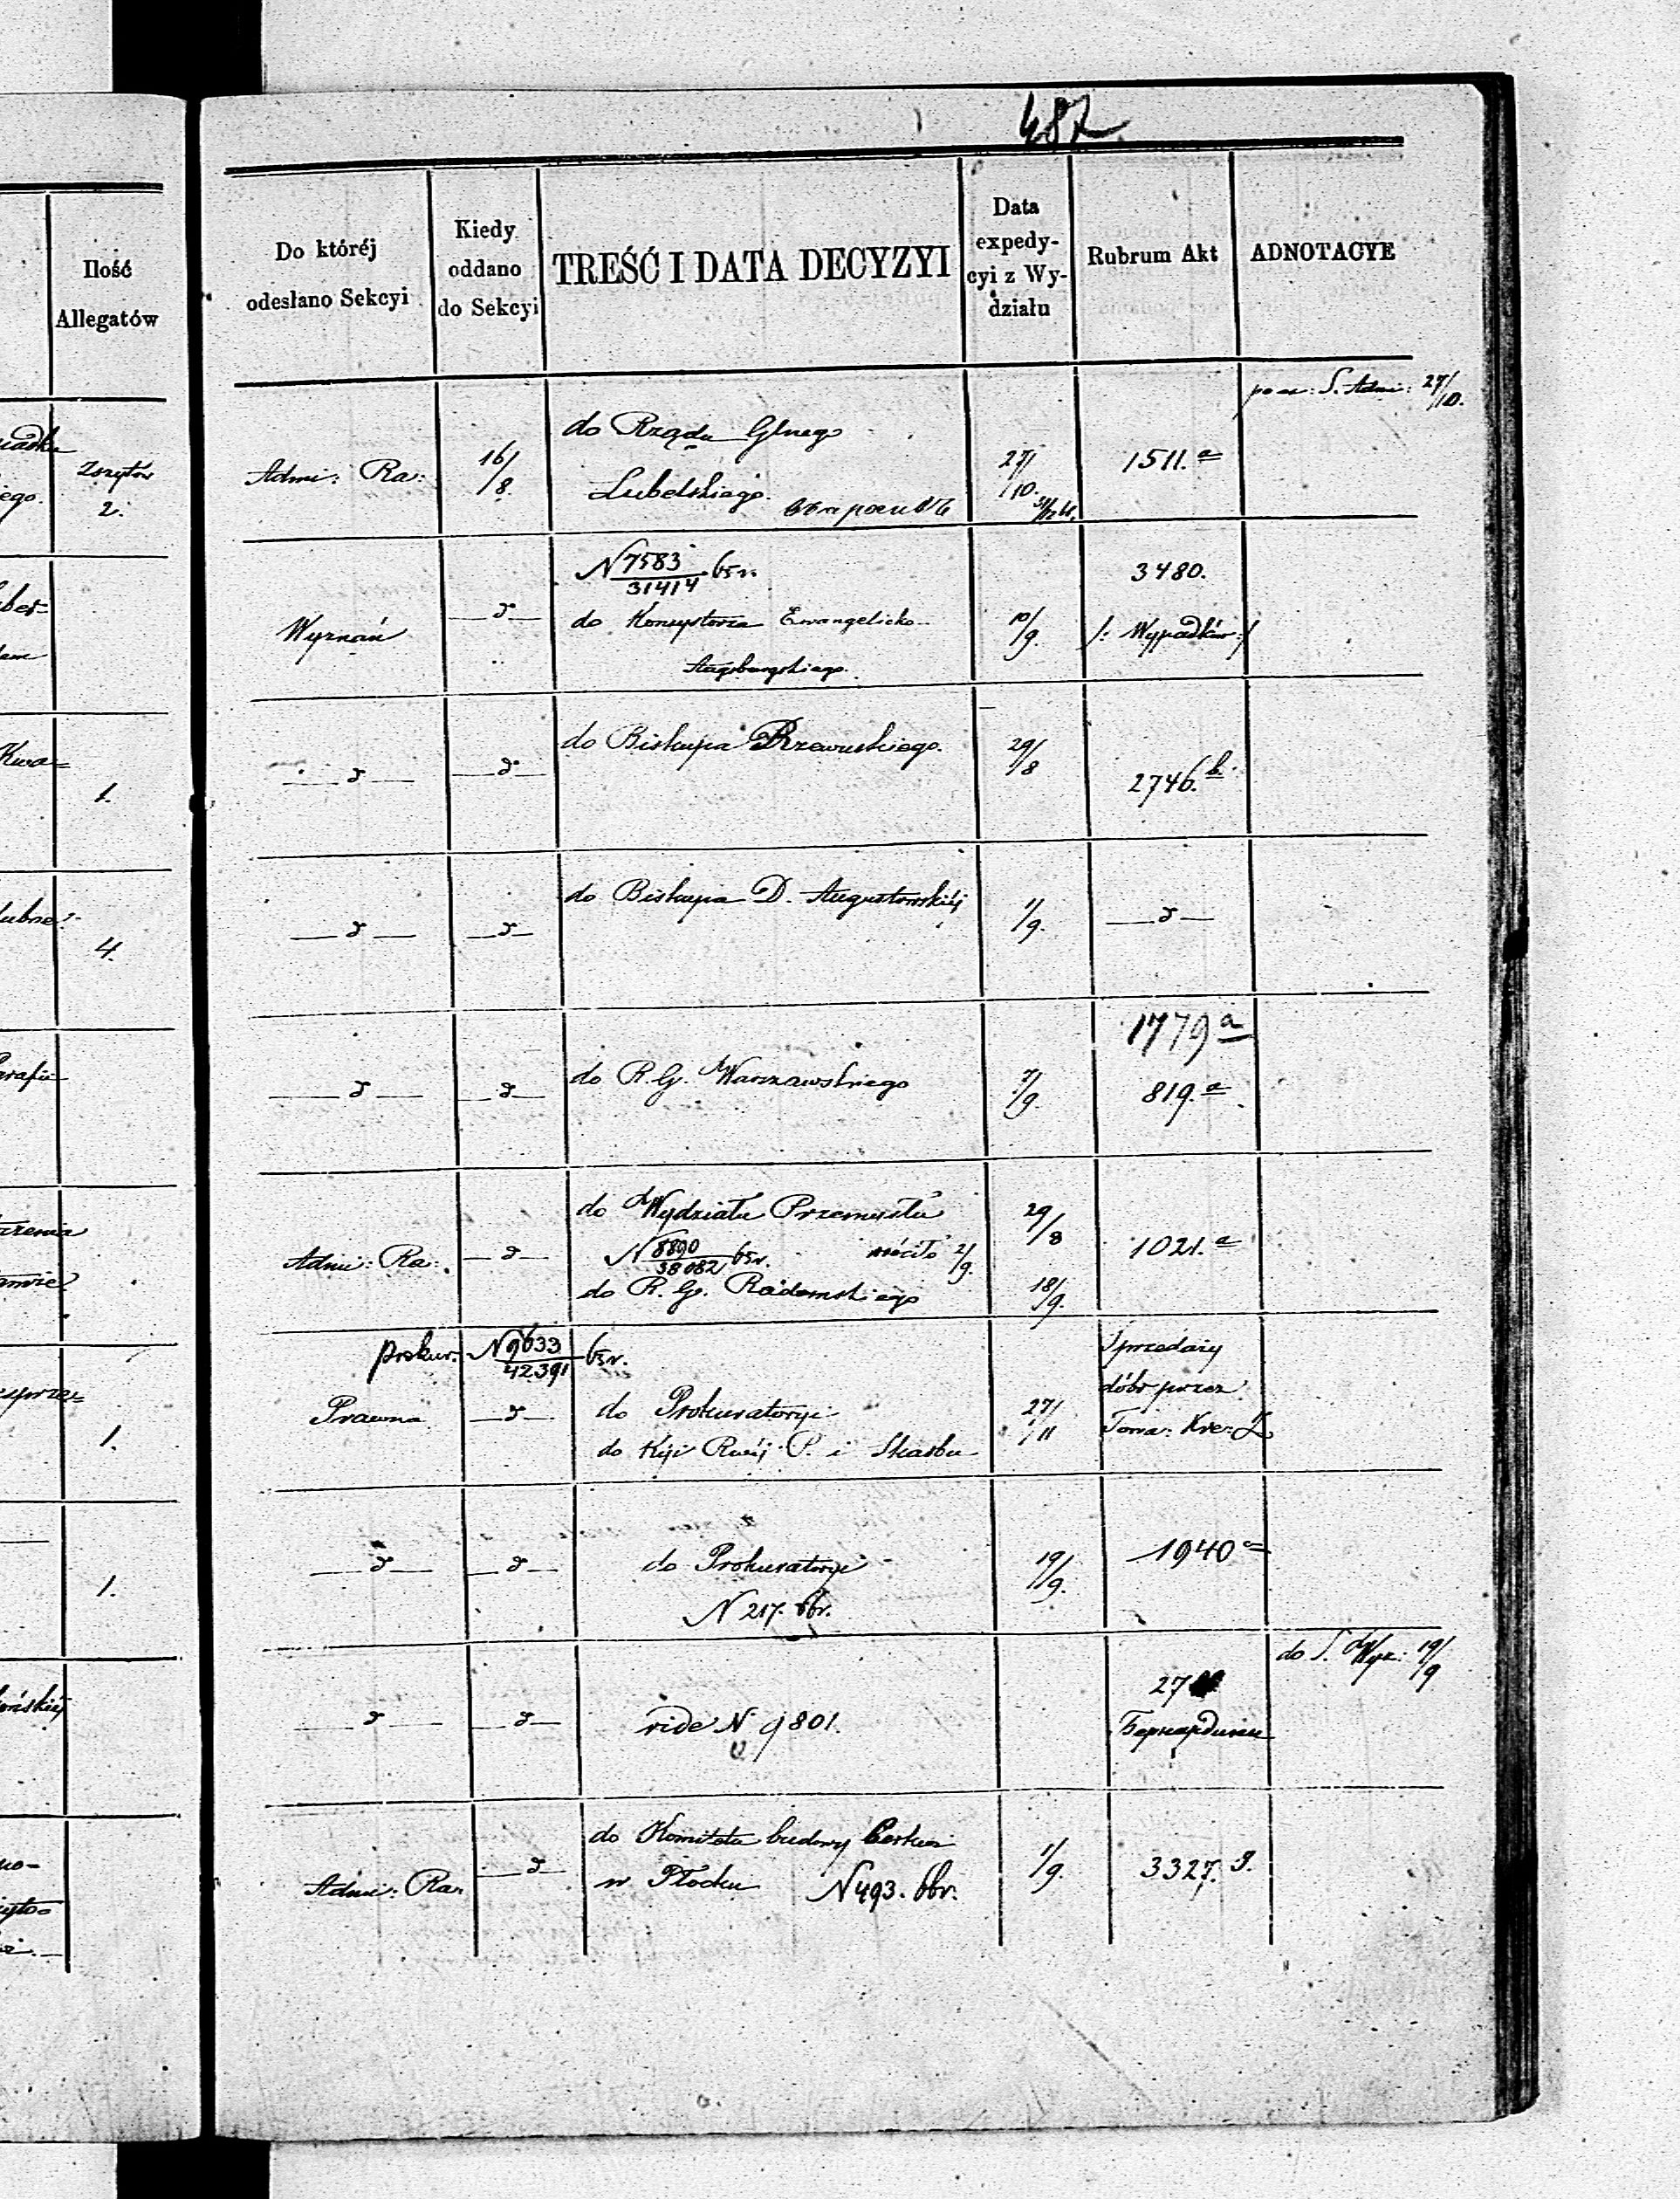 487.
Ilość
Allegatów
Do któréj
odesłano Sekcyi
Kiedy
oddano
do Sekcyi
TREŚĆ I DATA DECYZYI
Data
expedy-
cyi z Wy-
działu
Rubrum Akt
ADNOTACYE
S. Adm: 27/10.
Zszytów
2.
Admi: Ra:
16/8.
do Rządu Glnego
Lubelskiego.
27/10.
1511.a
Wyznań
— d —
N 7583/31414 65 r.
do Konsystorza Ewangelicko-
Augsburgskiego.
10/9.
3480.
/: Wypadków :/
1.
— d —
— d —
do Biskupa Rzewuskiego.
29/8
2746.b.
4.
— d —
— d —
do Biskupa D. Augustowskiéj
1/9.
— d —
— d —
— d —
do R. G. Warszawskiego
7/9.
1779 a
819.a
Admi: Ra:
— d —
do Wydziału Przemysłu
29/8
N 8890/38082 65 r. wróciło 2/9.
do R. G. Radomskiego
18/9.
1021.a
1.
prokur. N 9633/42391 65 r.
Prawna
— d —
do Prokuratoryi
do Kyi Rwéj P. i Skarbu
27/11
Sprzedaży
dóbr przez
Towa: Kre: Z
1.
— d —
— d —
do Prokuratoryi
N 217. 66r.
19/9.
1940 a
— d —
— d —
vide N 9801.
27
Бернардини
do S. Wyz: 19/9
Admi: Ra:
— d —
do Komitetu budowy Cerkwi
w Płocku N 493. 66r.
1/9.
3327. g.